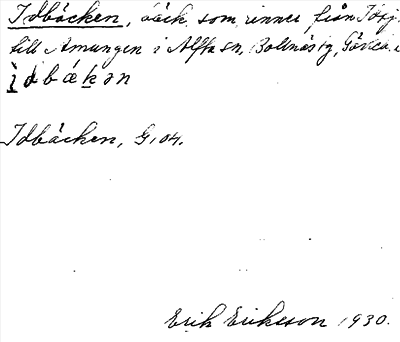 Idbäcken, bäck som rinner från Idsj.
till Amungen i Alfta sn, Bollnäs tg, Gävleb.
ìdbækən
Idbäcken, G. 04.
Erik Eriksson 1930.